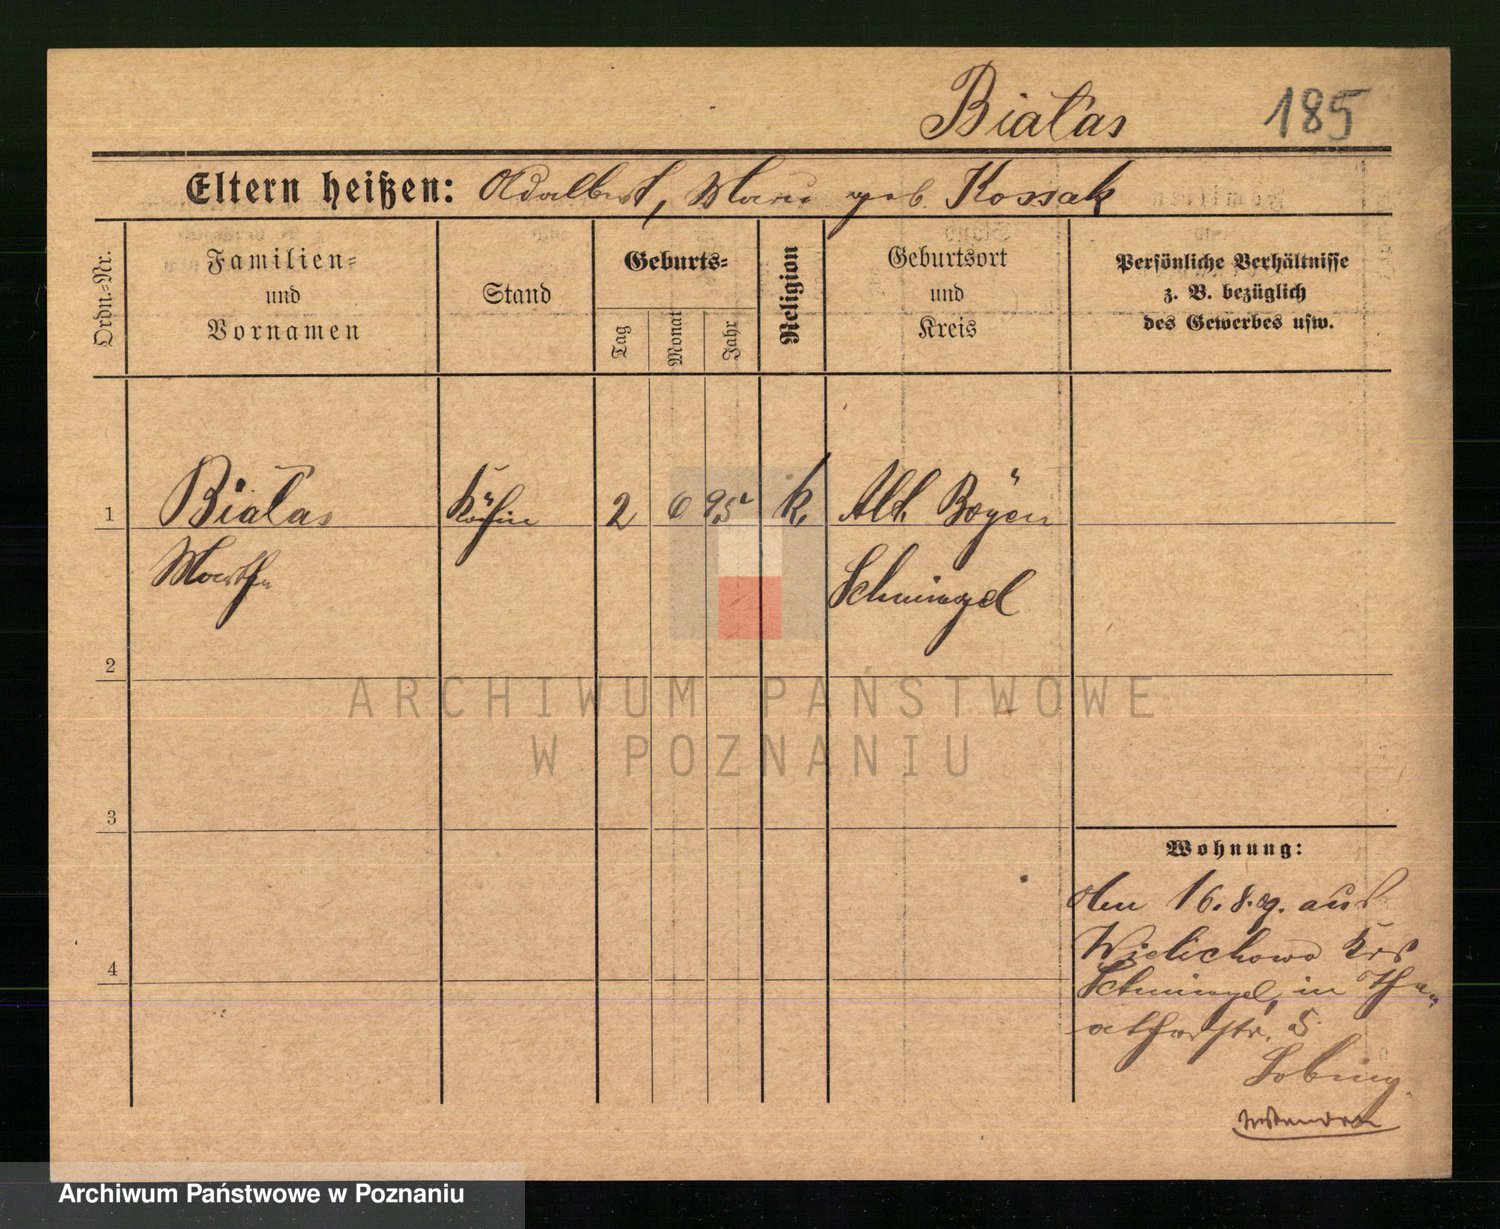 Białas 185
Eltern heißen: Adalbert, Marie geb. Kossak
Ordn.-Nr.
Familien-
und
Vornamen
Stand
Geburts-
Tag
Monat
Jahr
Religion
Geburtsort
und
Kreis
Persönliche Verhältnisse
z. B. bezüglich
des Gewerbes usw.
1 Białas Köchin 2 6 95 k. Alt Boyen
Martha Schmiegel
2
ARCHIWUM PAŃSTWOWE
W POZNANIU
3
Wohnung:
16. 8. 09. aus
Wielichowo Krs
4
Schmiegel, in The-
aterstr. 5
Archiwum Państwowe w Poznaniu